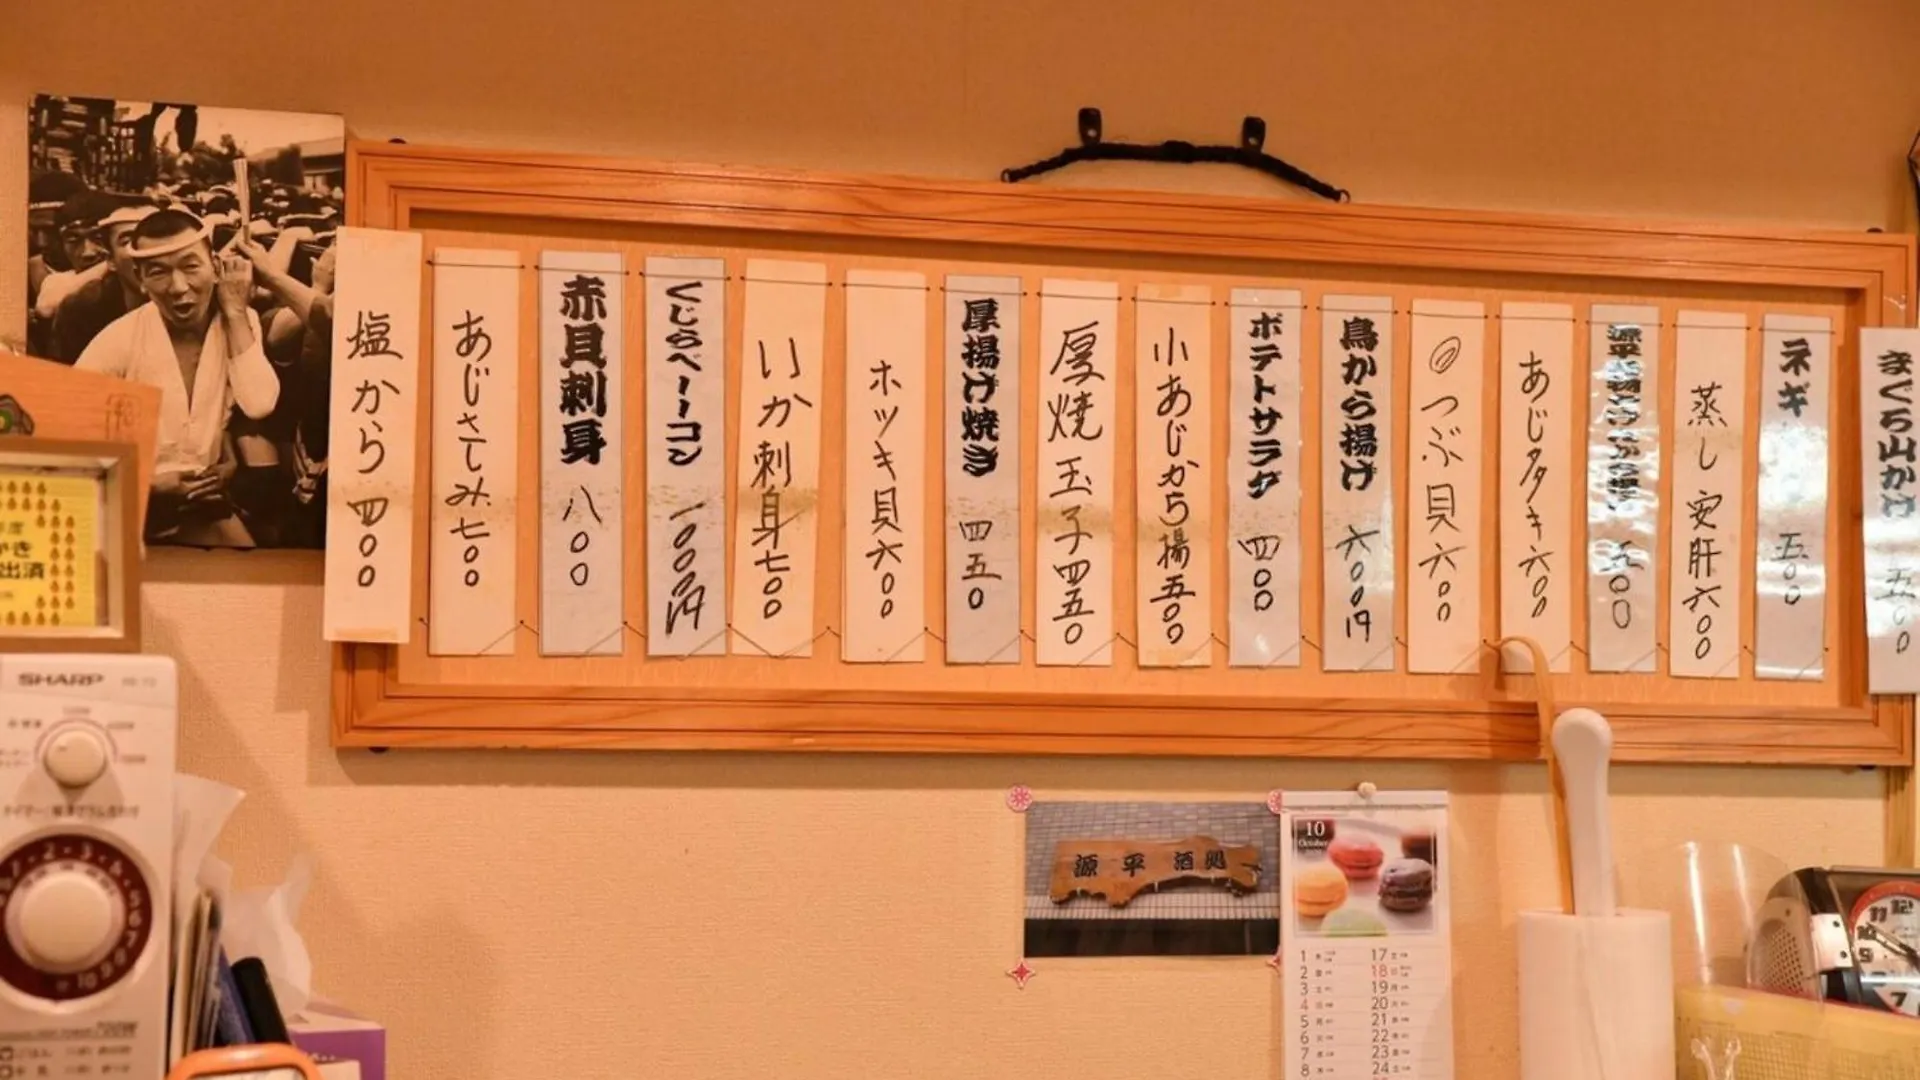 まぐろ山かけ 五〇〇
ネギ 五〇〇
蒸し安肝 六〇〇
あじタタキ 六〇〇
つぶ貝 六〇〇
鳥から揚げ 六〇〇円
ポテトサラダ 四〇〇
小あじから揚 五〇〇
厚焼玉子 四五〇
厚揚げ焼き 四五〇
ホッキ貝 六〇〇
いか刺身 七〇〇
くじらベーコン 一〇〇〇円
赤貝刺身 八〇〇
あじさしみ 七〇〇
塩から 四〇〇
出済
SHARP
源平酒処
10
October
1 17
2 18
3 19
4 20
5 21
6 22
7 23
8 24